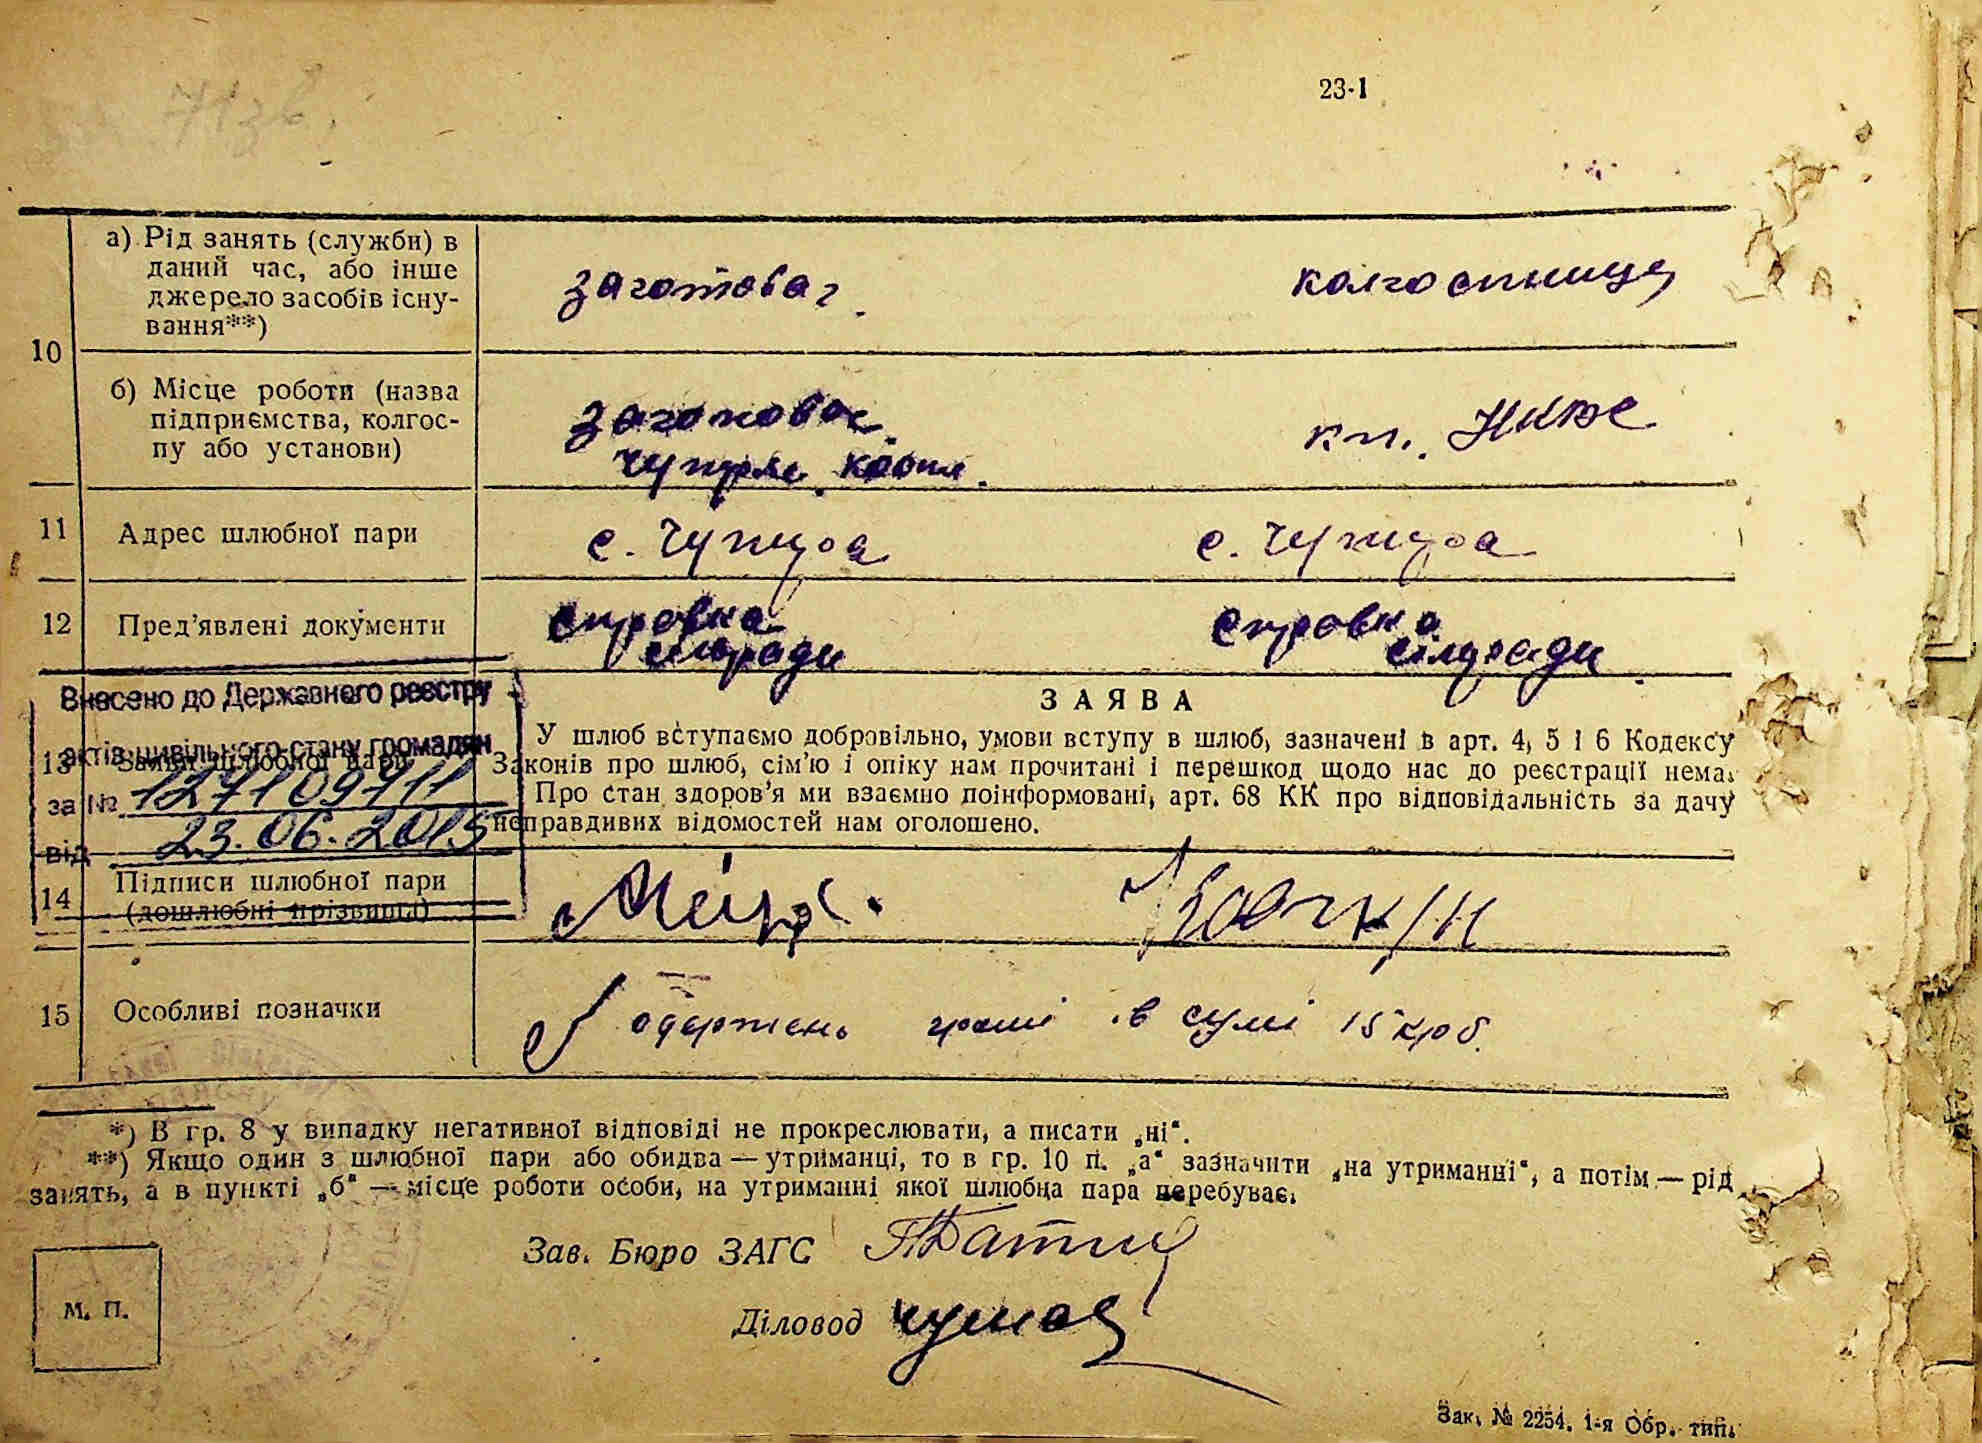 71зв.
23-1
10
а) Рід занять (служби) в
даний час, або інше
джерело засобів існу-
вання**)
колгоспниця
б) Місце роботи (назва
підприємства, колгос-
пу або установи)
11
Адрес шлюбної пари
с. Чупира
с. Чупира
12
Пред’явлені документи
справка
сілради
справка
сілради
Внесено до Державного реєстру
актів цивільного стану громадян
за № 127109711
від 23.06.2015
13
Заява шлюбної пари
ЗАЯВА
У шлюб вступаємо добровільно, умови вступу в шлюб, зазначені в арт. 4, 5 і 6 Кодексу
Законів про шлюб, сім’ю і опіку нам прочитані і перешкод щодо нас до реєстрації нема.
Про стан здоров’я ми взаємно поінформовані, арт. 68 КК про відповідальність за дачу
неправдивих відомостей нам оголошено.
14
Підписи шлюбної пари
(дошлюбні прізвища)
15
Особливі позначки
гроші в сумі 15 крб.
*) В гр. 8 у випадку негативної відповіді не прокреслювати, а писати „ні“.
**) Якщо один з шлюбної пари або обидва — утриманці, то в гр. 10 п. „а“ зазначити „на утриманні“, а потім — рід
занять, а в пункті „б“ — місце роботи особи, на утриманні якої шлюбна пара перебуває.
Зав. Бюро ЗАГС
Діловод
М. П.
Зак. № 2254. 1-я Обр. тип.